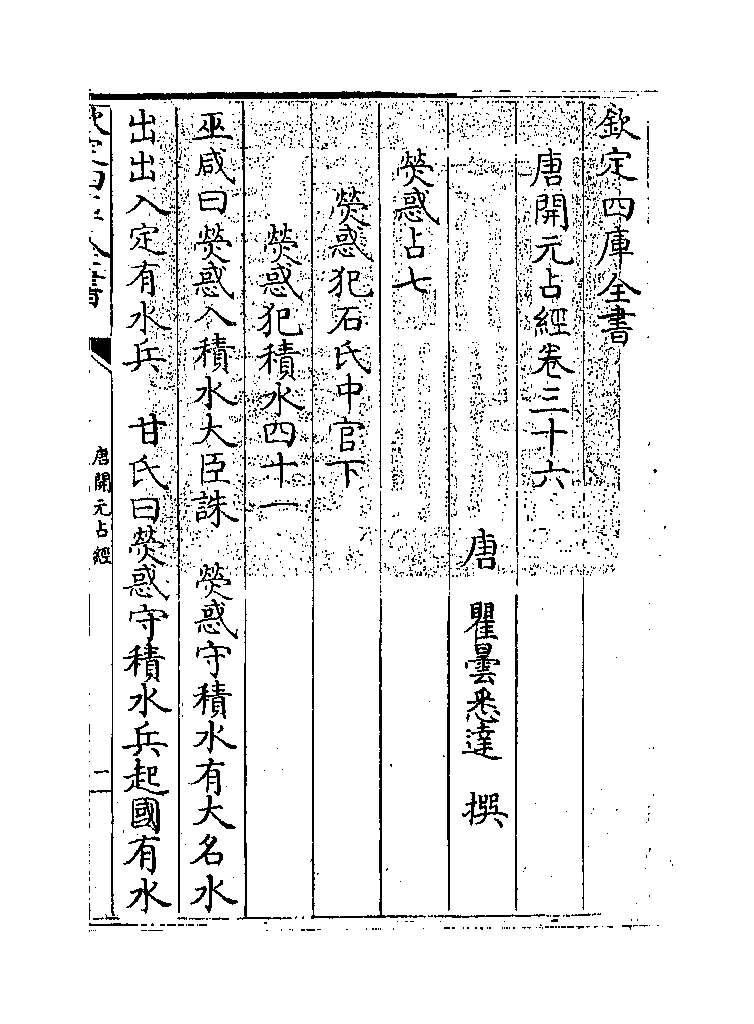 欽定四庫全書
唐開元占經卷三十六
唐 瞿曇悉達 撰
熒惑占七
熒惑犯石氏中官下
熒惑犯積水四十一
巫咸曰熒惑入積水大臣誅 熒惑守積水有大名水
出出入定有水兵 甘氏曰熒惑守積水兵起國有水
欽定四庫全書
唐開元占經